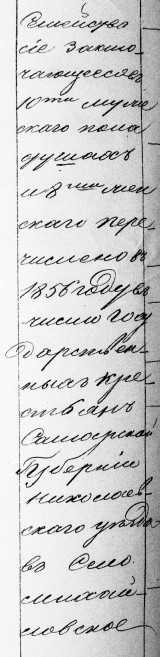 Семейство
сіе заклю-
чающееся въ
10ти муже
скаго пола
душахъ
и 8ми жен
скаго пере-
числено въ
1856 году въ
число Госу
дарствен-
ныхъ кре
стьянъ
Самарской
Губерніи
Николаев-
скаго уѣзда
въ Село
михай-
ловское